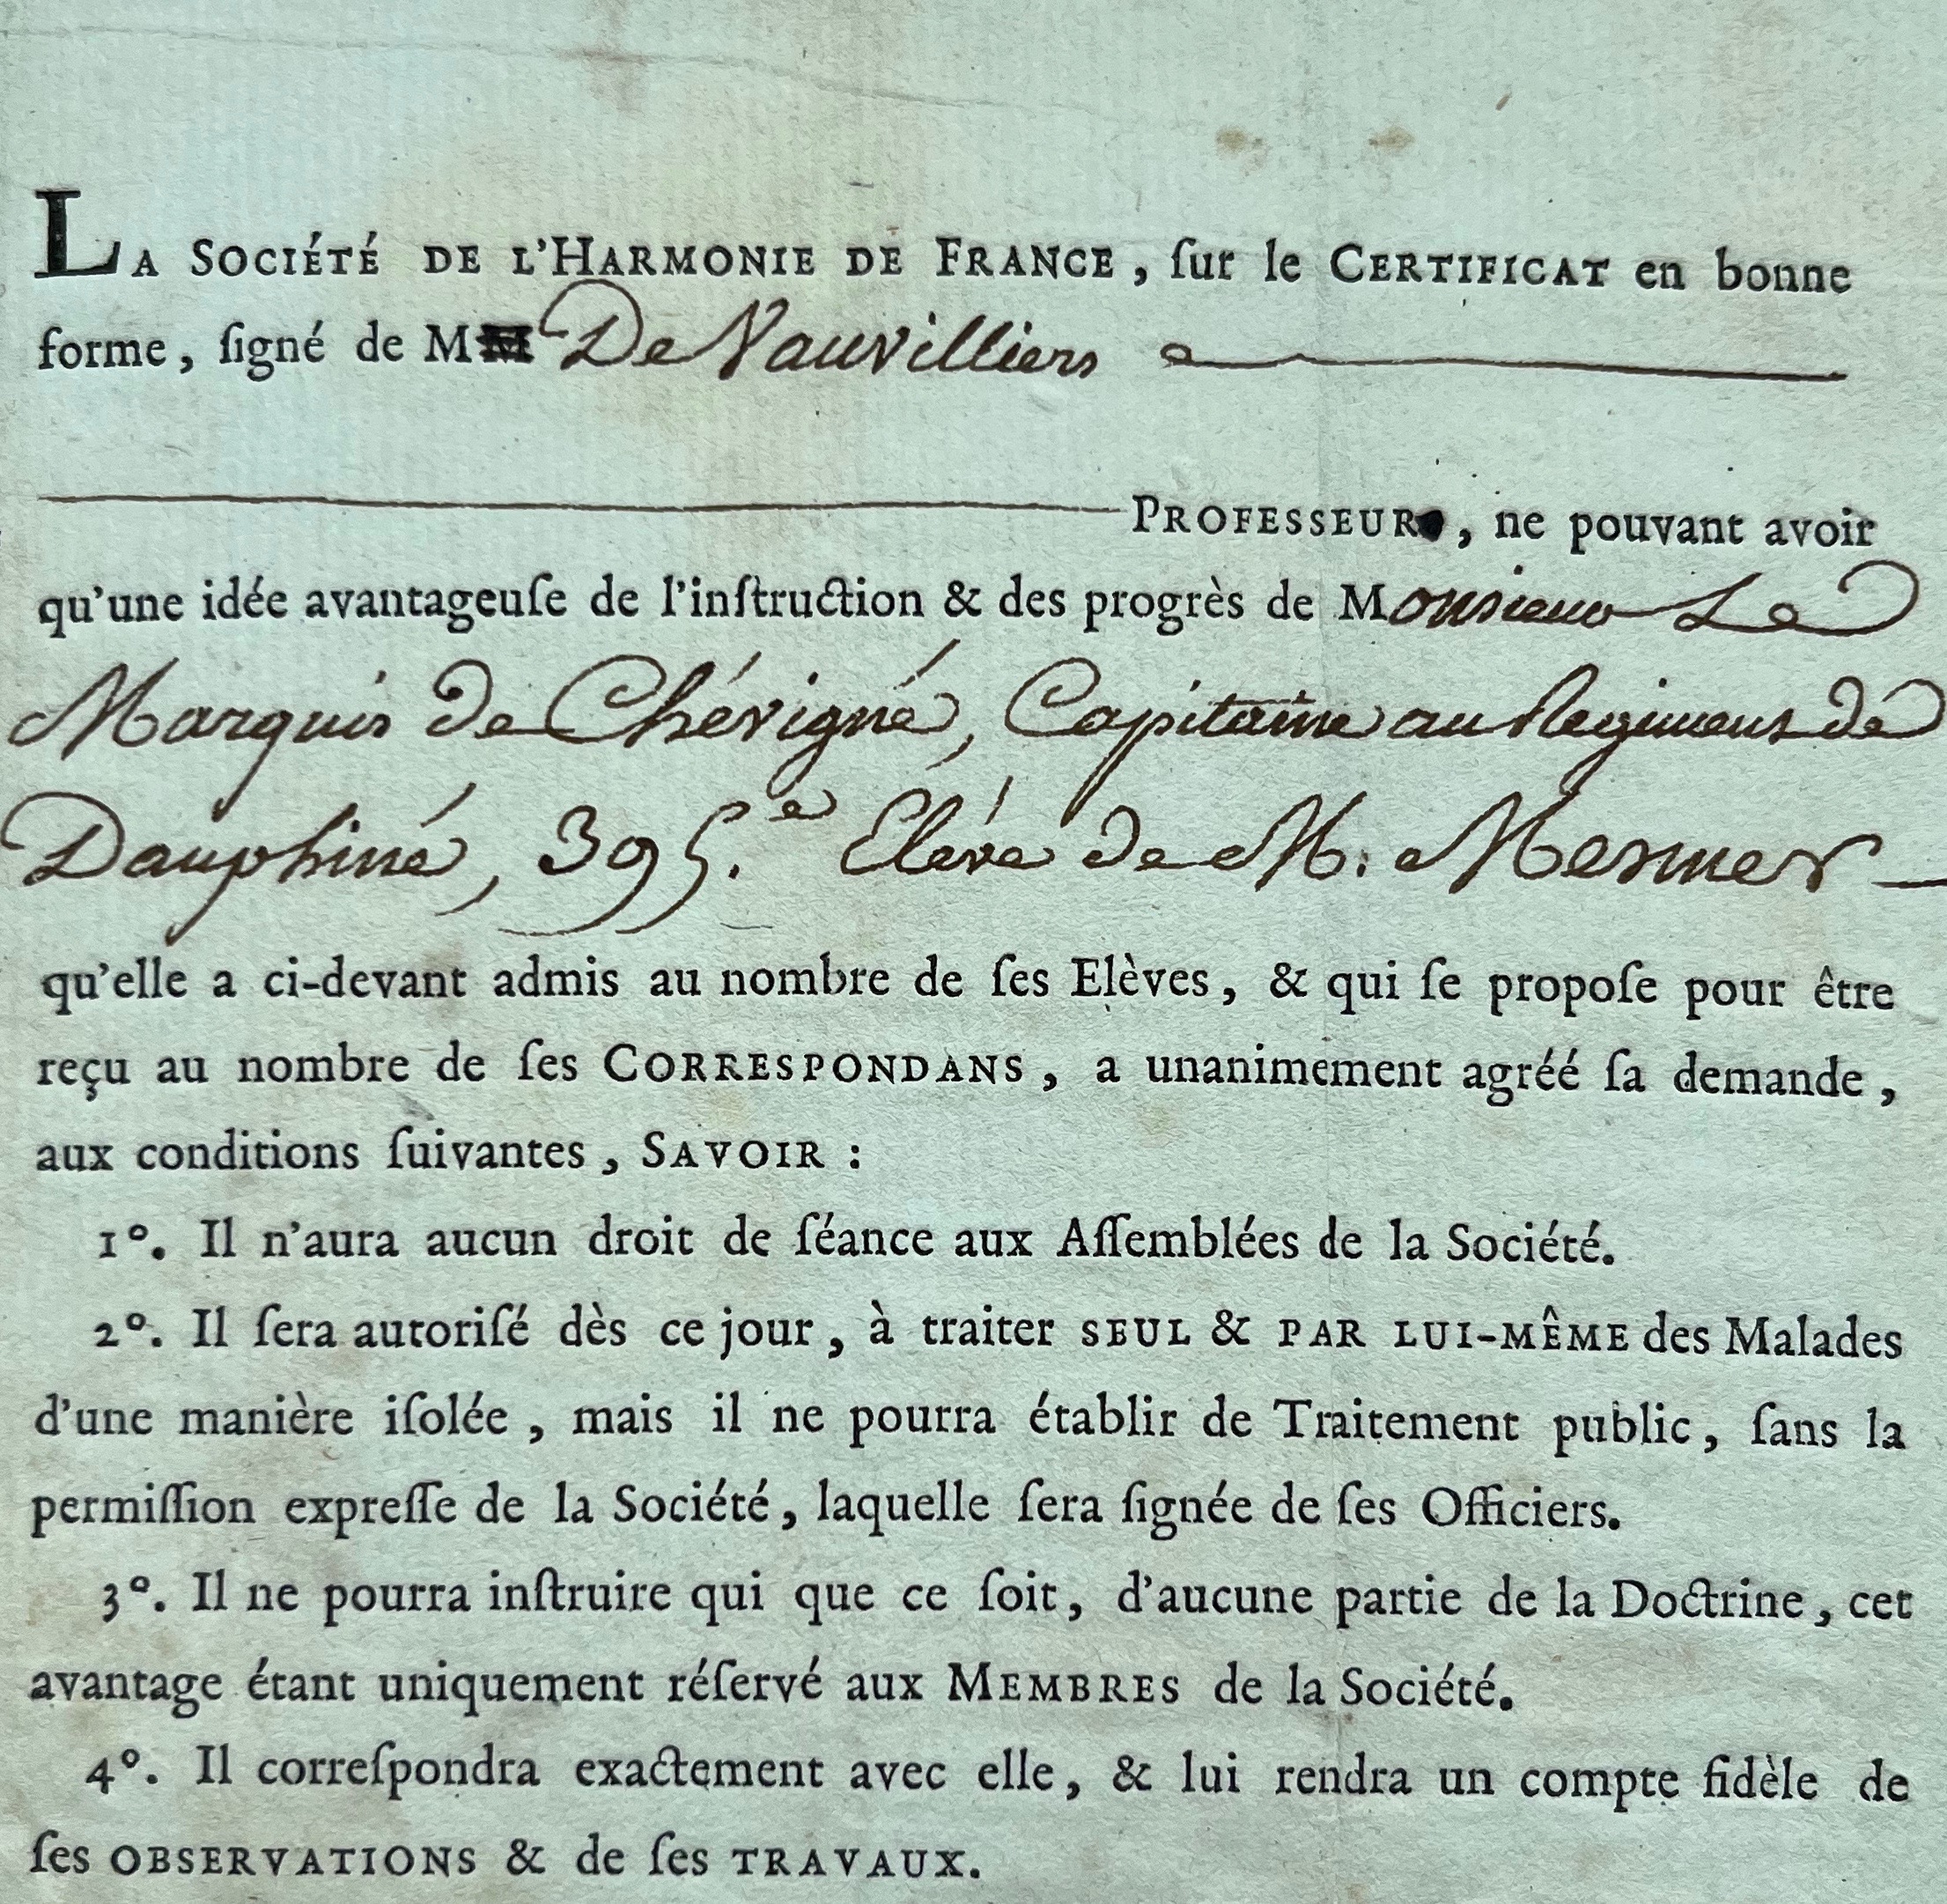 LA SOCIÉTÉ DE L'HARMONIE DE FRANCE, ſur le CERTIFICAT en bonne
forme, ſigné de M De Vauvilliers
PROFESSEUR, ne pouvant avoir
qu'une idée avantageuſe de l'inſtruction & des progrès de Monsieur Le
Marquis de Chévigné, Capitaine au Regiment de
Dauphiné, 395.e Eléve de M. Mesmer
qu'elle a ci-devant admis au nombre de ſes Elèves, & qui ſe propoſe pour être
reçu au nombre de ſes CORRESPONDANS, a unanimement agréé ſa demande,
aux conditions ſuivantes, SAVOIR :
1°. Il n'aura aucun droit de ſéance aux Aſſemblées de la Société.
2°. Il ſera autoriſé dès ce jour, à traiter SEUL & PAR LUI-MÊME des Malades
d'une manière iſolée, mais il ne pourra établir de Traitement public, ſans la
permiſſion expreſſe de la Société, laquelle ſera ſignée de ſes Officiers.
3°. Il ne pourra inſtruire qui que ce ſoit, d'aucune partie de la Doctrine, cet
avantage étant uniquement réſervé aux MEMBRES de la Société.
4°. Il correſpondra exactement avec elle, & lui rendra un compte fidèle de
ſes OBSERVATIONS & de ſes TRAVAUX.